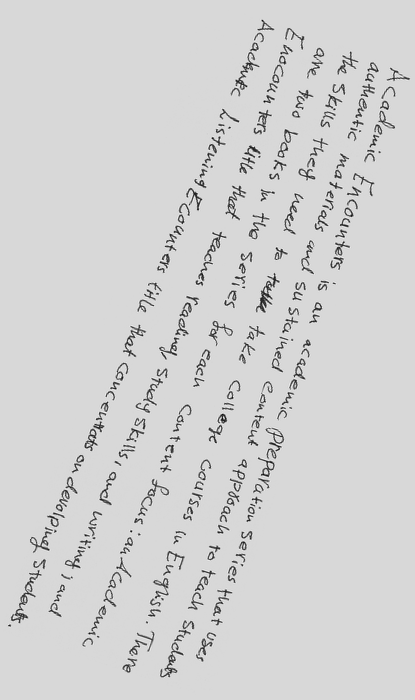 Academic Encounters is an academic preparation series that uses
authentic materials and sustained content approach to teach students
the skills they need to take college courses in English. There
are two books in the series for each content focus: an Academic
Enocounters title that teaches reading, study skills, and writing, and
Academic Listening Ecounters title that concentrates on develping students.